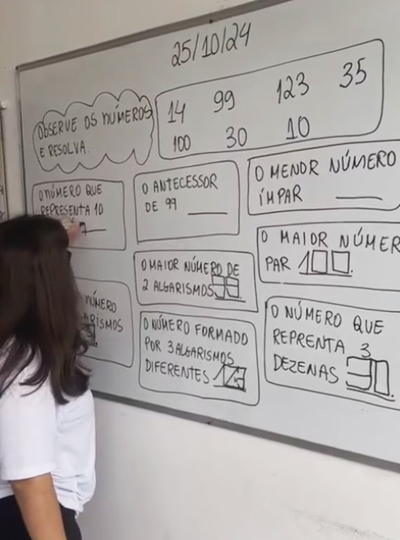 25/10/24
OBSERVE OS NÚMEROS
E RESOLVA.
14 99 123 35
100 30 10
O NÚMERO QUE
REPRESENTA 10
O ANTECESSOR
DE 99 ____
O MENOR NÚMERO
ÍMPAR ____
O MAIOR NÚMERO DE
2 ALGARISMOS 99
O MAIOR NÚMER
PAR 100.
NÚMERO
O NÚMERO FORMADO
POR 3 ALGARISMOS
DIFERENTES 123
O NÚMERO QUE
REPRENTA 3
DEZENAS 30.